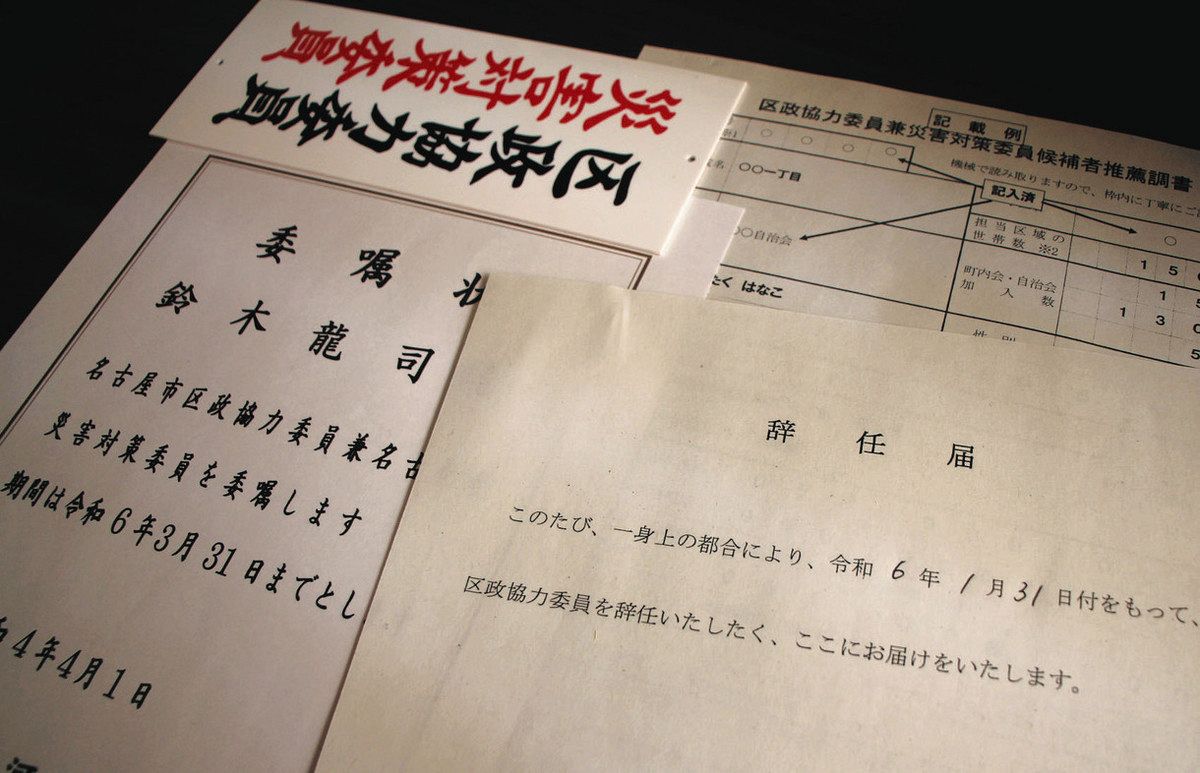 災害対策委員
区政協力委員
記載例
区政協力委員兼災害対策委員候補者推薦調書
機械で読み取りますので、枠内に丁寧にご
○ ○ ○ ○
名 ○○一丁目
記入済
○
担当区域の
世帯数 ※2
1 5
○自治会
町内会・自治会
加入数
1 5
1 3 0
たく はなこ
性別
5
委嘱状
鈴木龍司
名古屋市区政協力委員兼名古
災害対策委員を委嘱します
期間は令和6年3月31日までとし
4年4月1日
辞任届
このたび、一身上の都合により、令和 6 年 1 月 31 日付をもって、
区政協力委員を辞任いたしたく、ここにお届けをいたします。